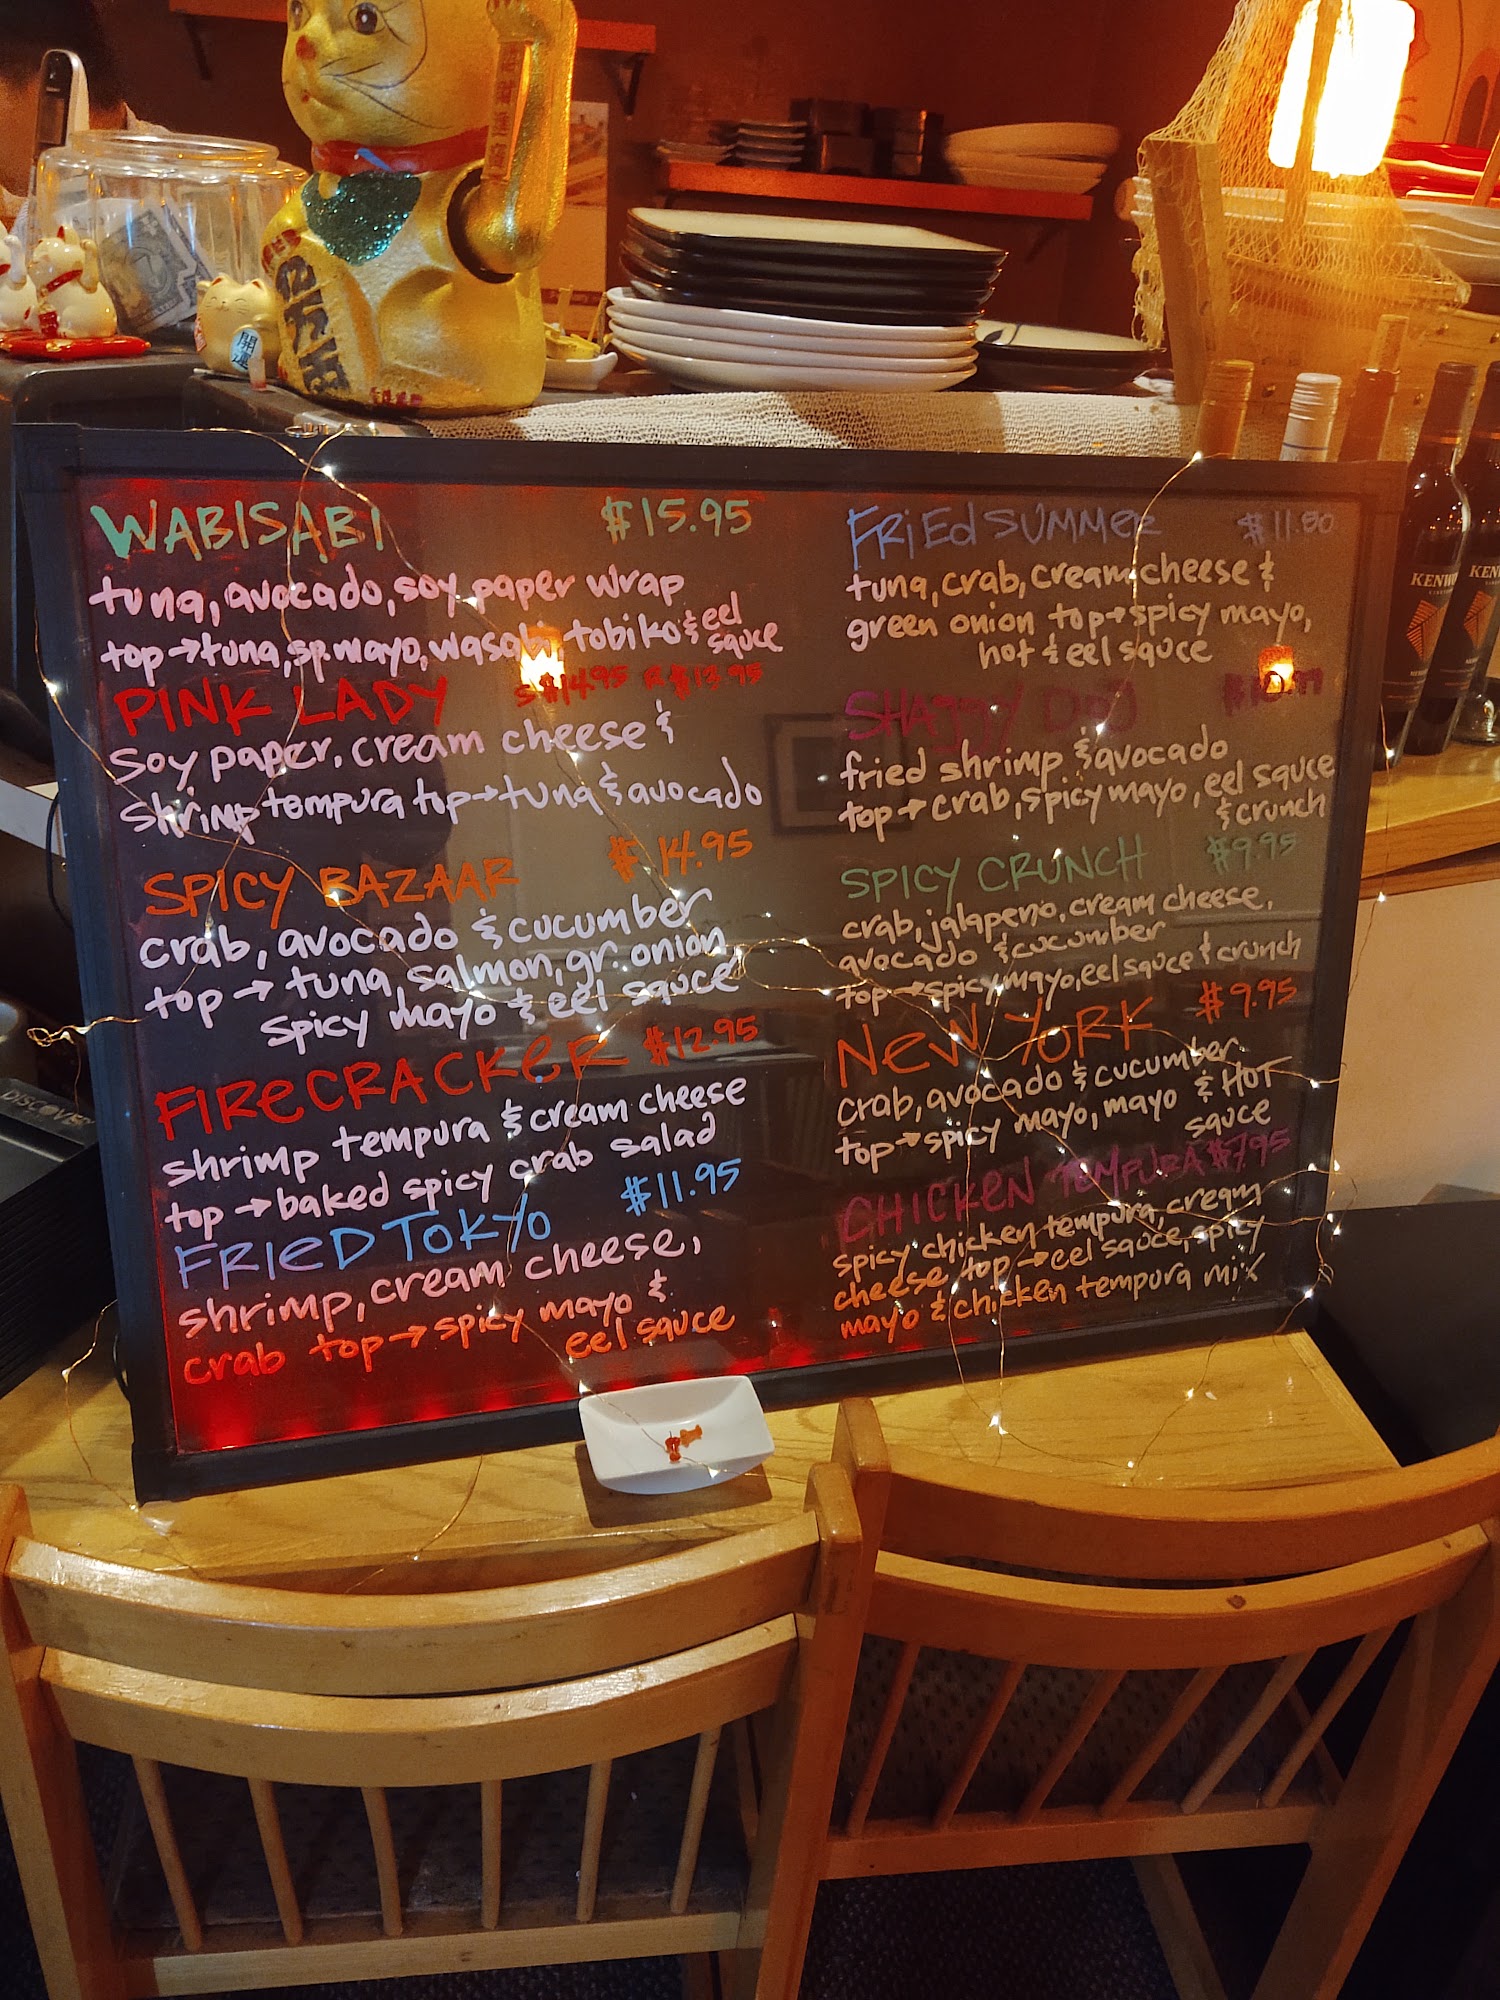 WABISABI $15.95
tuna, avocado, soy paper wrap
top→tuna, sp. mayo, wasabi tobiko & eel
sauce
PINK LADY S$14.95 R$13.95
Soy paper, cream cheese &
shrimp tempura top→tuna & avocado
SPICY BAZAAR $14.95
crab, avocado & cucumber
top → tuna, salmon, gr. onion,
spicy mayo & eel sauce
FIRECRACKER $12.95
shrimp tempura & cream cheese
top→baked spicy crab salad
FRIED TOKYO $11.95
shrimp, cream cheese,
crab top→spicy mayo &
eel sauce
FRiEd SUMMer
tuna, crab, cream cheese &
green onion top→spicy mayo,
hot & eel sauce
SHAGGY DOG
fried shrimp & avocado
top→crab, spicy mayo, eel sauce
& crunch
SPICY CRUNCH $9.95
crab, jalapeno, cream cheese,
avocado & cucumber
top→spicy mayo, eel sauce & crunch
NeW YORK $9.95
crab, avocado & cucumber
top→spicy mayo, mayo & HOT
sauce
CHICKeN TeMPURA $7.95
spicy chicken tempura, cream
cheese top→eel sauce, spicy
mayo & chicken tempura mix
開運
DISCOVER
KENW
KEN